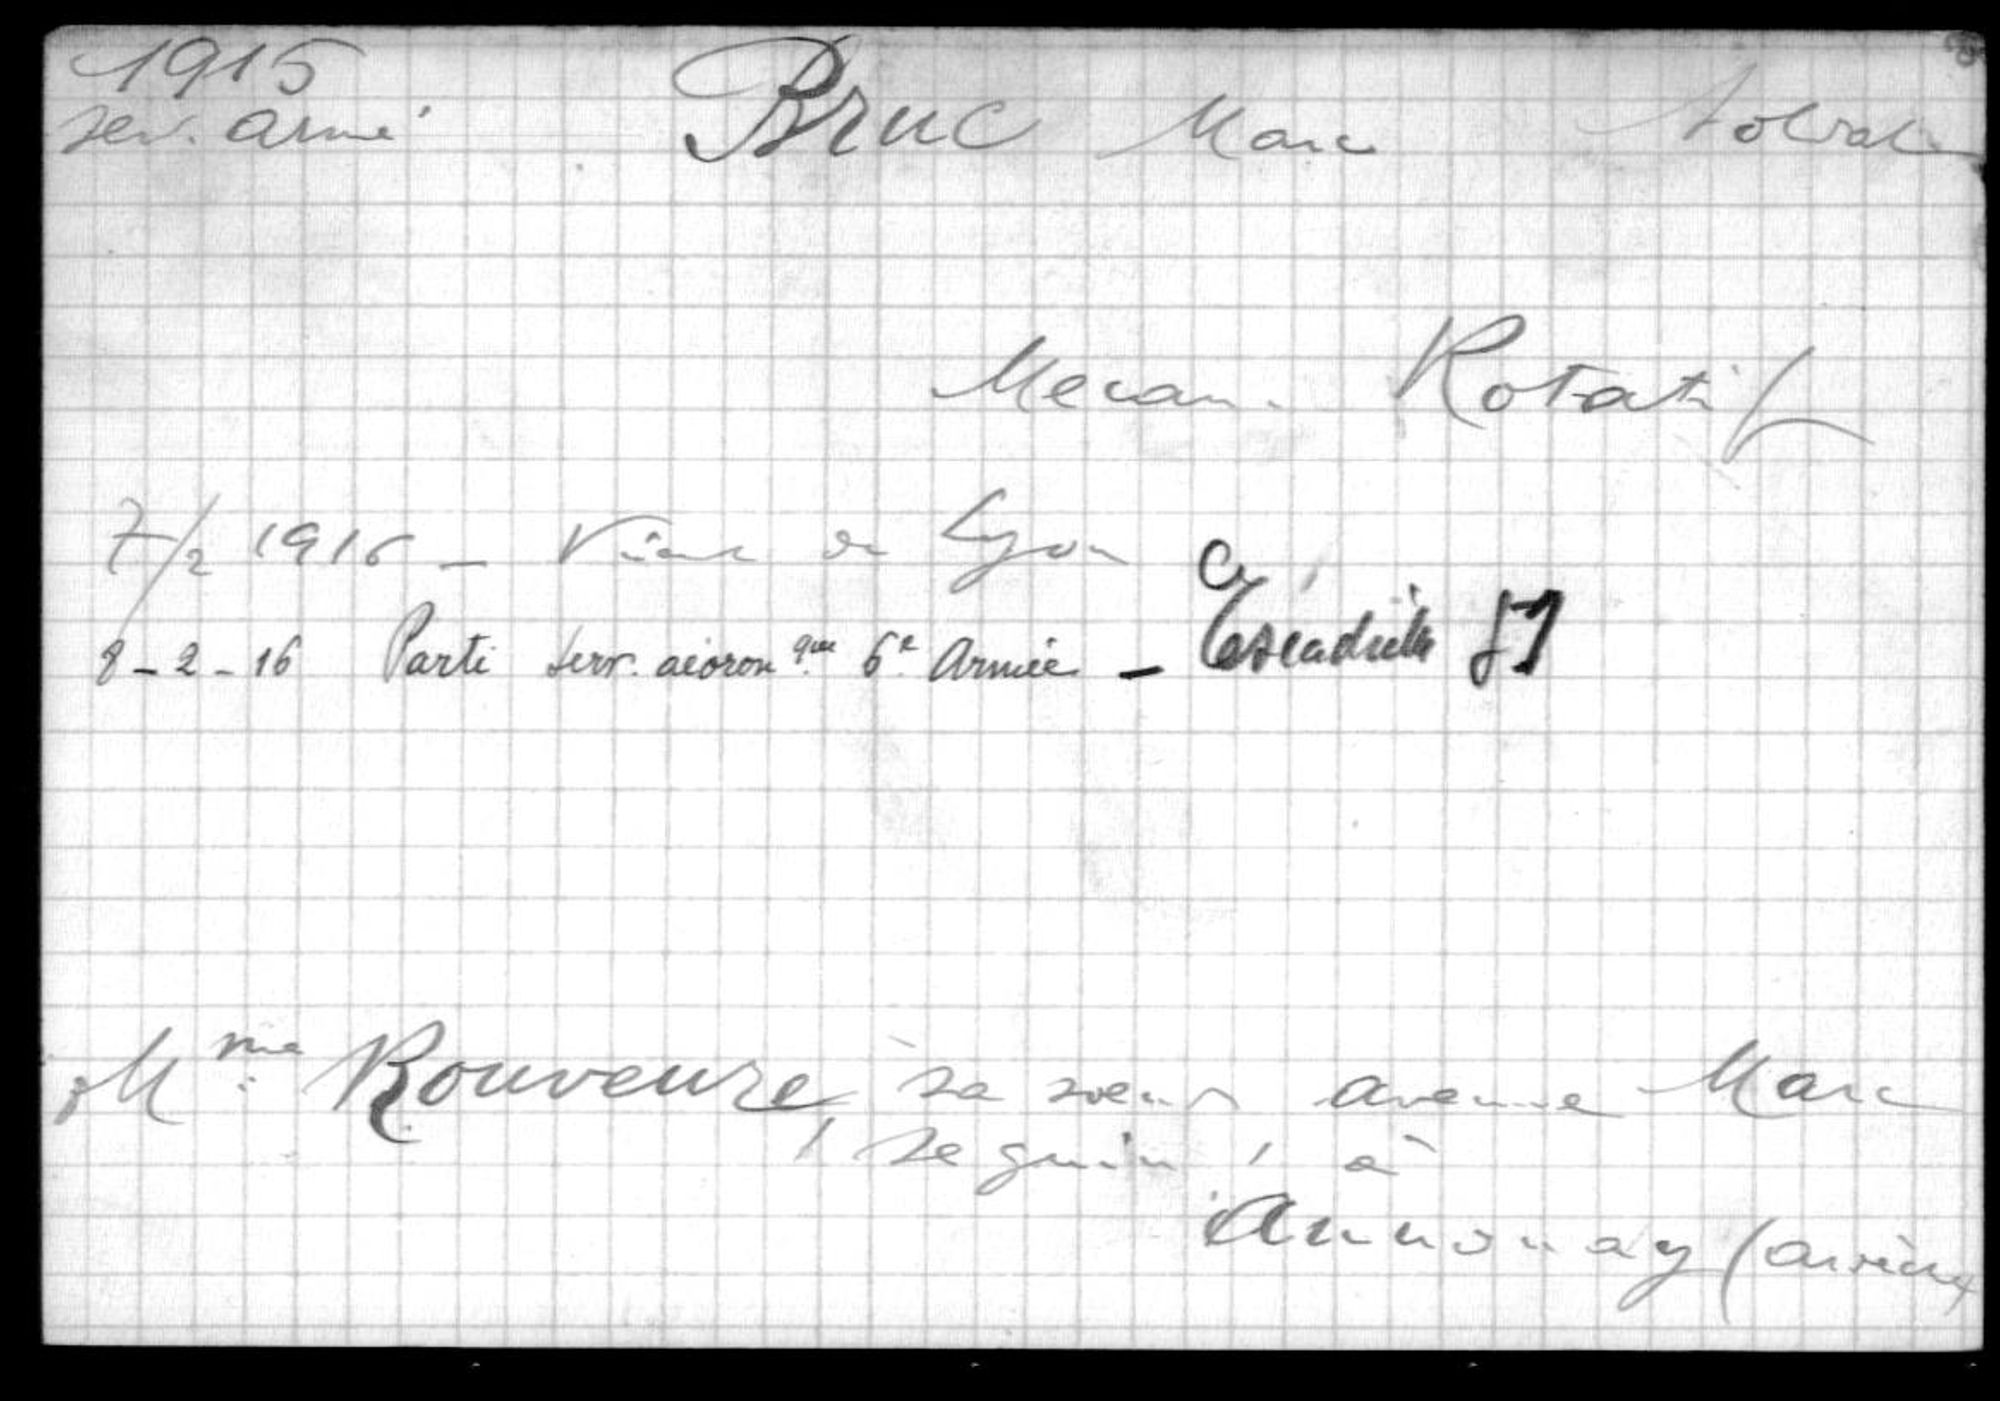 1915 Bruc Marc Soldat
serv. armé
Mecan. Rotatif
7/2 1916 – Vient de Lyon
8-2-16 Parti serv. aéronque 6e Armée – Escadrille
Mme Rouveure, sa soeur avenue Marc
Seguin, à
Annonay (Ardèche)